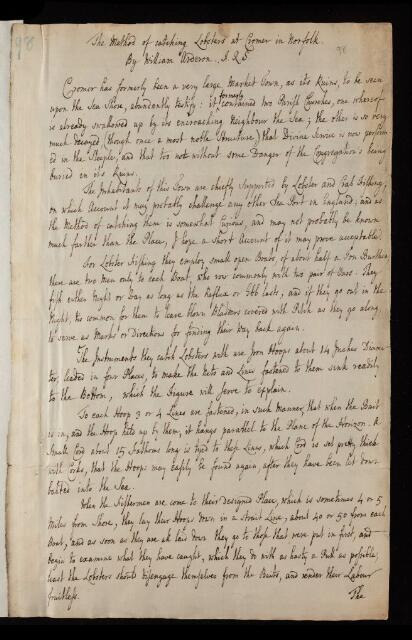 98
The Method of catching Lobsters at Cromer in Norfolk.
By William Arderon. F.R.S.
98
Cromer has formerly been a very large Market Town, as its Ruins, to be seen
upon the Sea Shore, abundantly testify: it formerly contained two Parish Churches, one whereof
is already swallowed up by its encroaching Neighbour the Sea; the other is so very
much decayed, (though once a most noble Structure) that Divine Service is now perform
ed in the Steeple, and that too not without some Danger of the Congregation's being
buried in its Ruins.
The Inhabitants of this Town are chiefly supported by Lobster and Crab Fishing,
on which Account it may probably challenge any other Sea Port in England; and as
the Method of catching them is somewhat Curious, and may not probably be known
much farther than the Place, I hope a short Account of it may prove acceptable.
For Lobster Fishing they employ small open Boats of about half a Ton Burthen
there are two Men only to each Boat, who row commonly with two pair of Oars. They
fish either Night or Day as long as the Reflux or Ebb lasts, and if they go out in the
Night, tis common for them to leave down Bladders covered with Pitch as they go along,
to serve as Marks or Directions for finding their Way back again.
The Instruments they catch Lobsters with are Iron Hoops about 14 Inches Diame
ter, leaded in four Places, to make the Nets and Lines fastened to them sink readily
to the Bottom, which the Figure will serve to explain.
To each Hoop 3 or 4 Lines are fastened, in such Manner, that when the Bait
is in, and the Hoop lets up by them, it hangs parallel to the Plane of the Horizon. A
Small Cord about 15 Fathoms long is tyed to these Lines, which Cord is set pretty thick
with Corks, that the Hoops may easily be found again after they have been let down
baited into the Sea.
When the Fishermen are come to their designed Place, which is sometimes 4 or 5
Miles from Shore, they lay their Hoops down in a strait Line, about 40 or 50 from each
Boat, and as soon as they are all laid down they go to those that were put in first, and
begin to examine what they have caught, which they do with as hasty a Pull as possible
least the Lobsters should disengage themselves from the Baits, and render their Labour
fruitless.
The